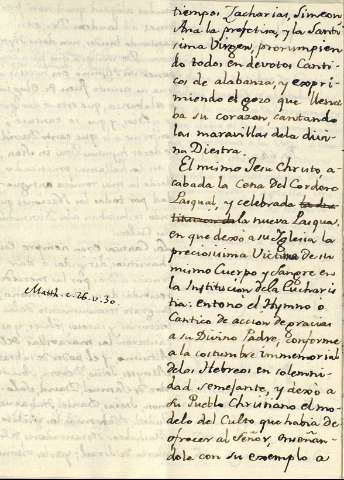 tiempos Zacharias, Simeon
Ana la profetisa, y la Santi-
sima Virgen, prorumpien-
do todos en devotos Canti-
cos de alabanza, y expri-
miendo el gozo que llena-
ba su corazon, cantando
las maravillas dela divi-
na Diestra.
El mismo Jesu Christo a-
cabada la Cena Del Cordero
Pasqual, y celebrada la nueva Pasqua,
en que dexó a su Iglesia la
preciosisima Victima de su
mismo Cuerpo y Sangre en
la Institucion dela Eucharis-
tia: entonó el Hymno ò
Cantico de accion de gracias
a su Divino Padre, conforme
a la costumbre immemorial
delos Hebreos en solemni-
dad semejante, y dexò a
su Pueblo Christiano el mo-
delo del Culto que habia de
ofrecer al Señor, enseñan-
dole con su exemplo a
Matth. c. 26. v. 30.